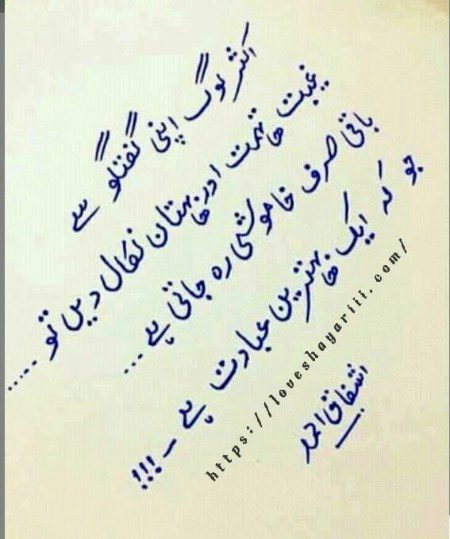 اکثر لوگ اپنی گفتگو سے
غیبت تہمت اور بہتان نکال دیں تو .....
باقی صرف خاموشی رہ جاتی ہے ...
جو کہ ایک بہترین عبادت ہے ۔!!!
اشفاق احمد
https://loveshayariii.com/